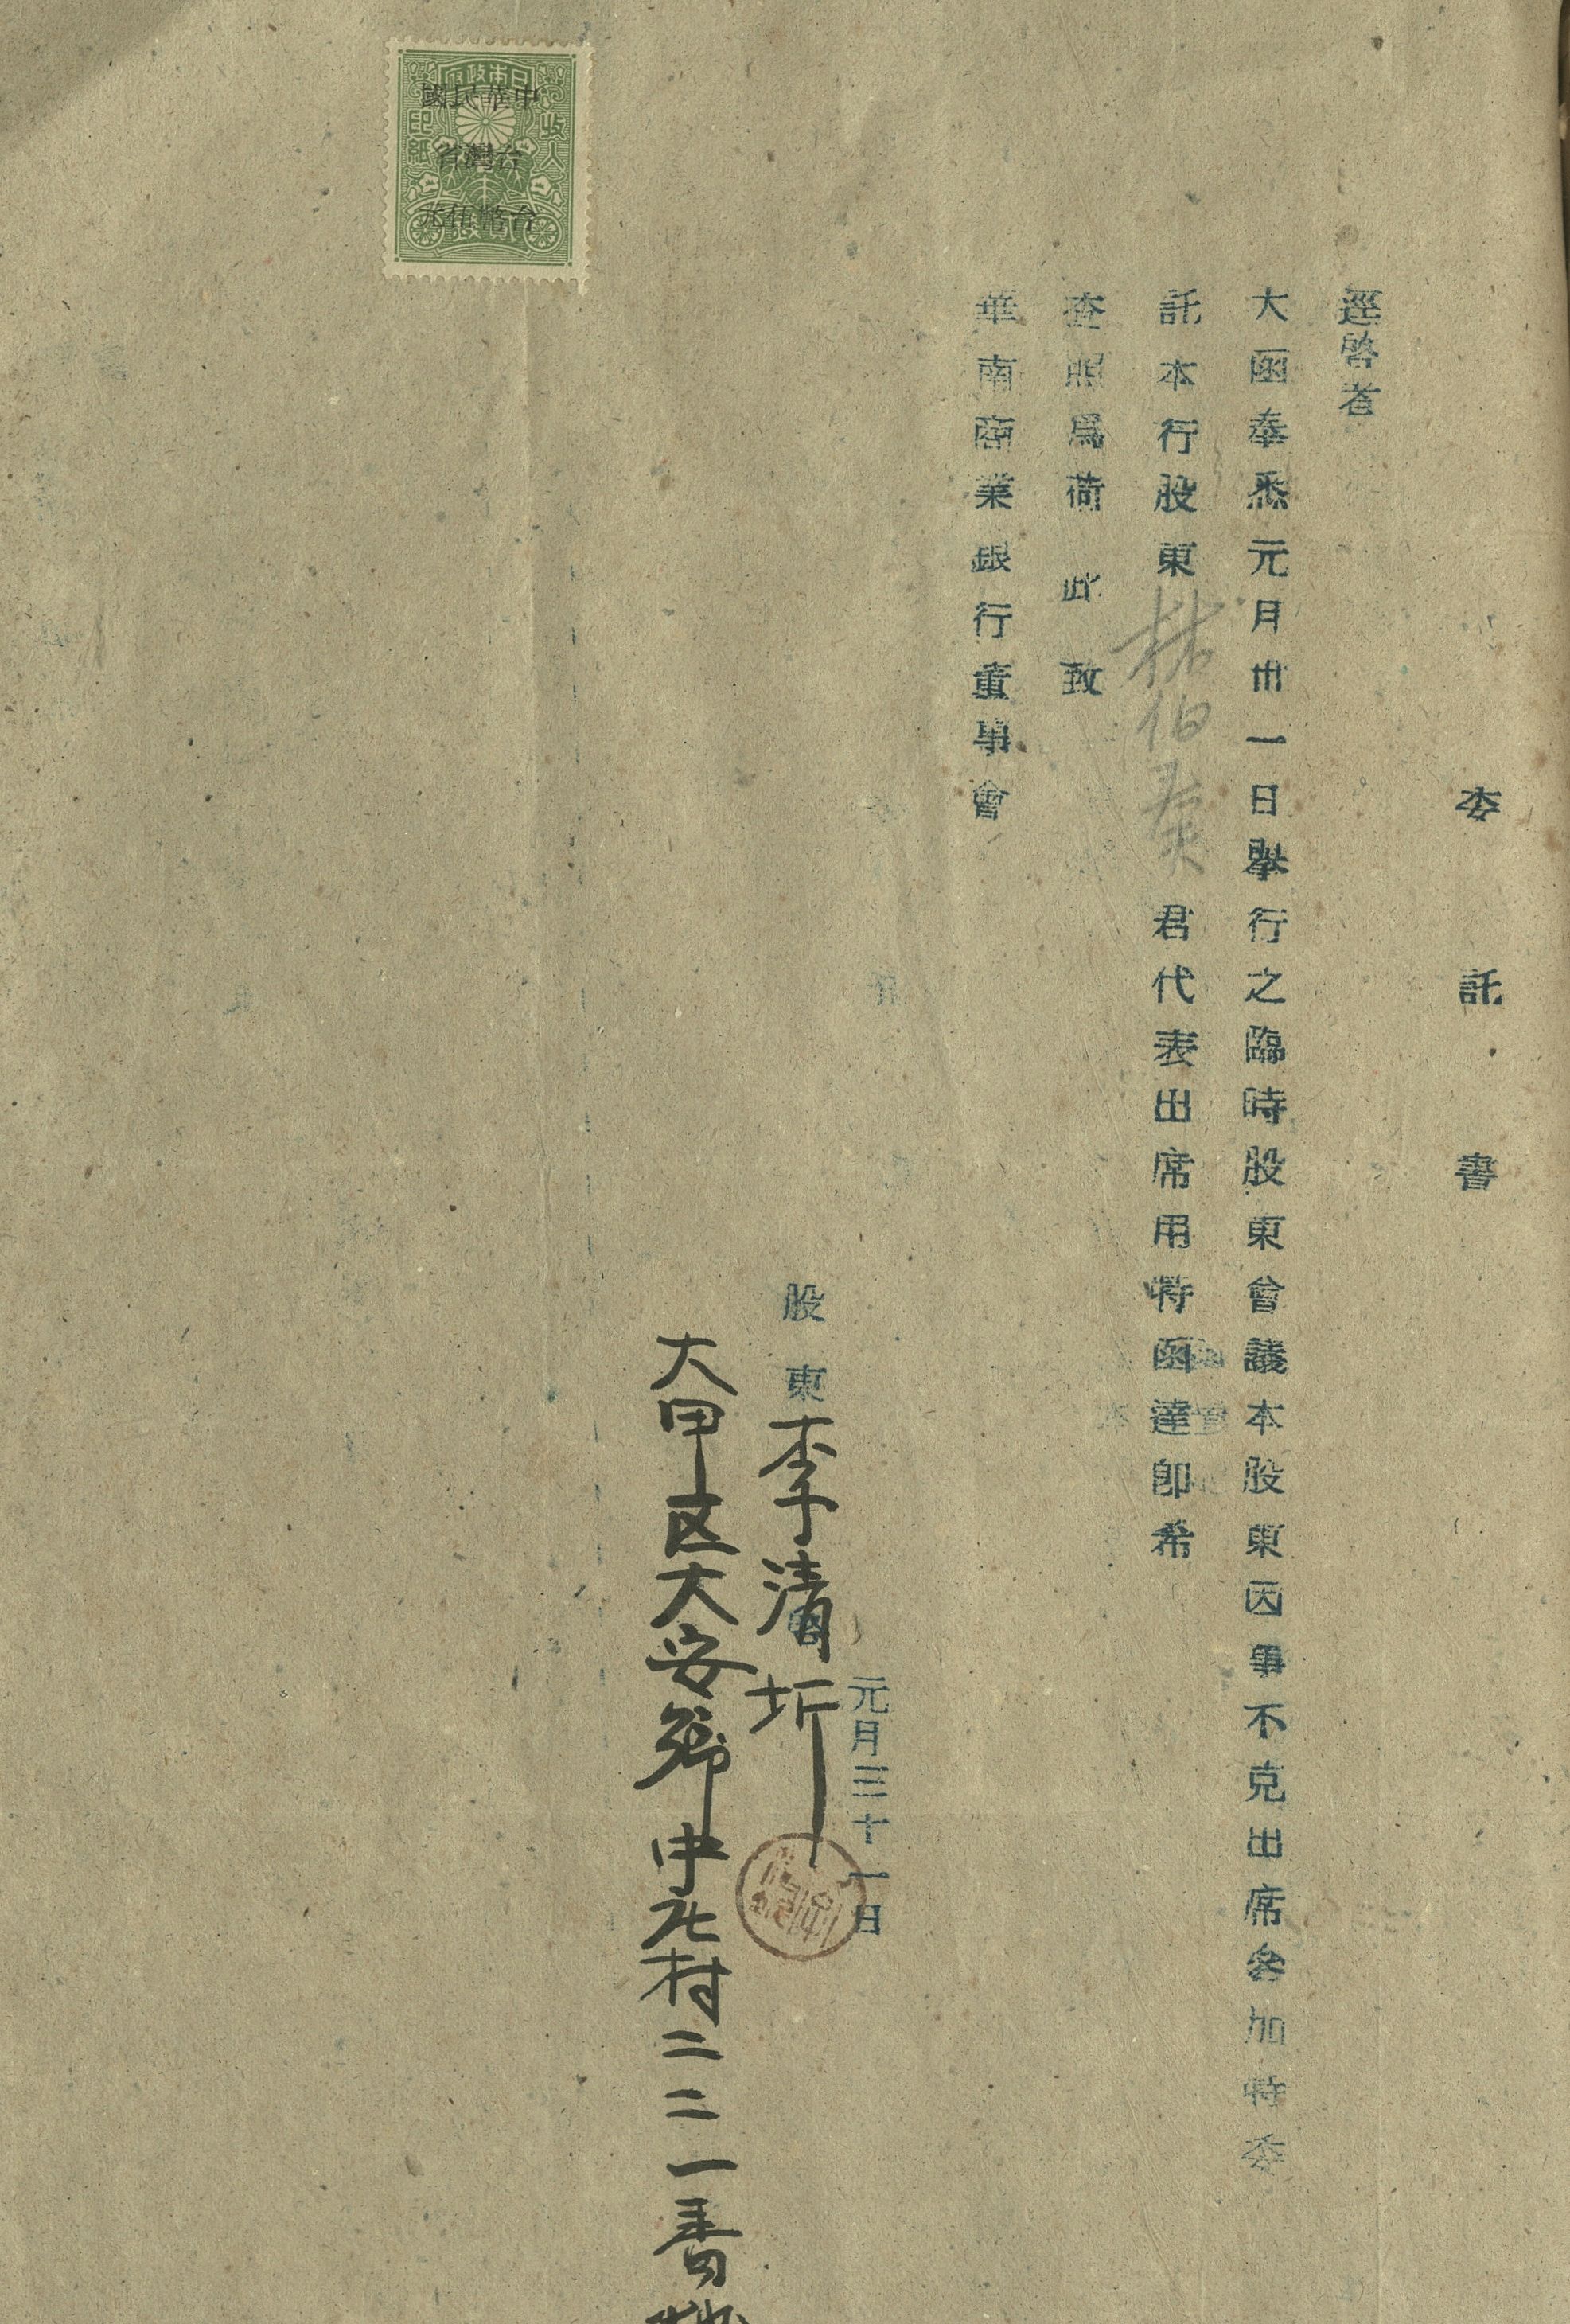 委託書
逕啓者
大函奉悉元月卅一日舉行之臨時股東會議本股東因事不克出席參加特委
託本行股東林伯奏君代表出席用特函達卽希
查照爲荷 此致
華南商業銀行董事會
元月三十一日
股東李清圻
大甲区大安鄉中庄村二二一番
日本政府
收入印紙
中華民國
台灣省
台幣伍元